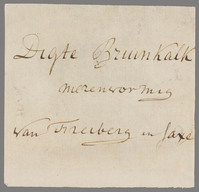 Digte Bruinkalk
merenvormig
van Freiberg in Saxe